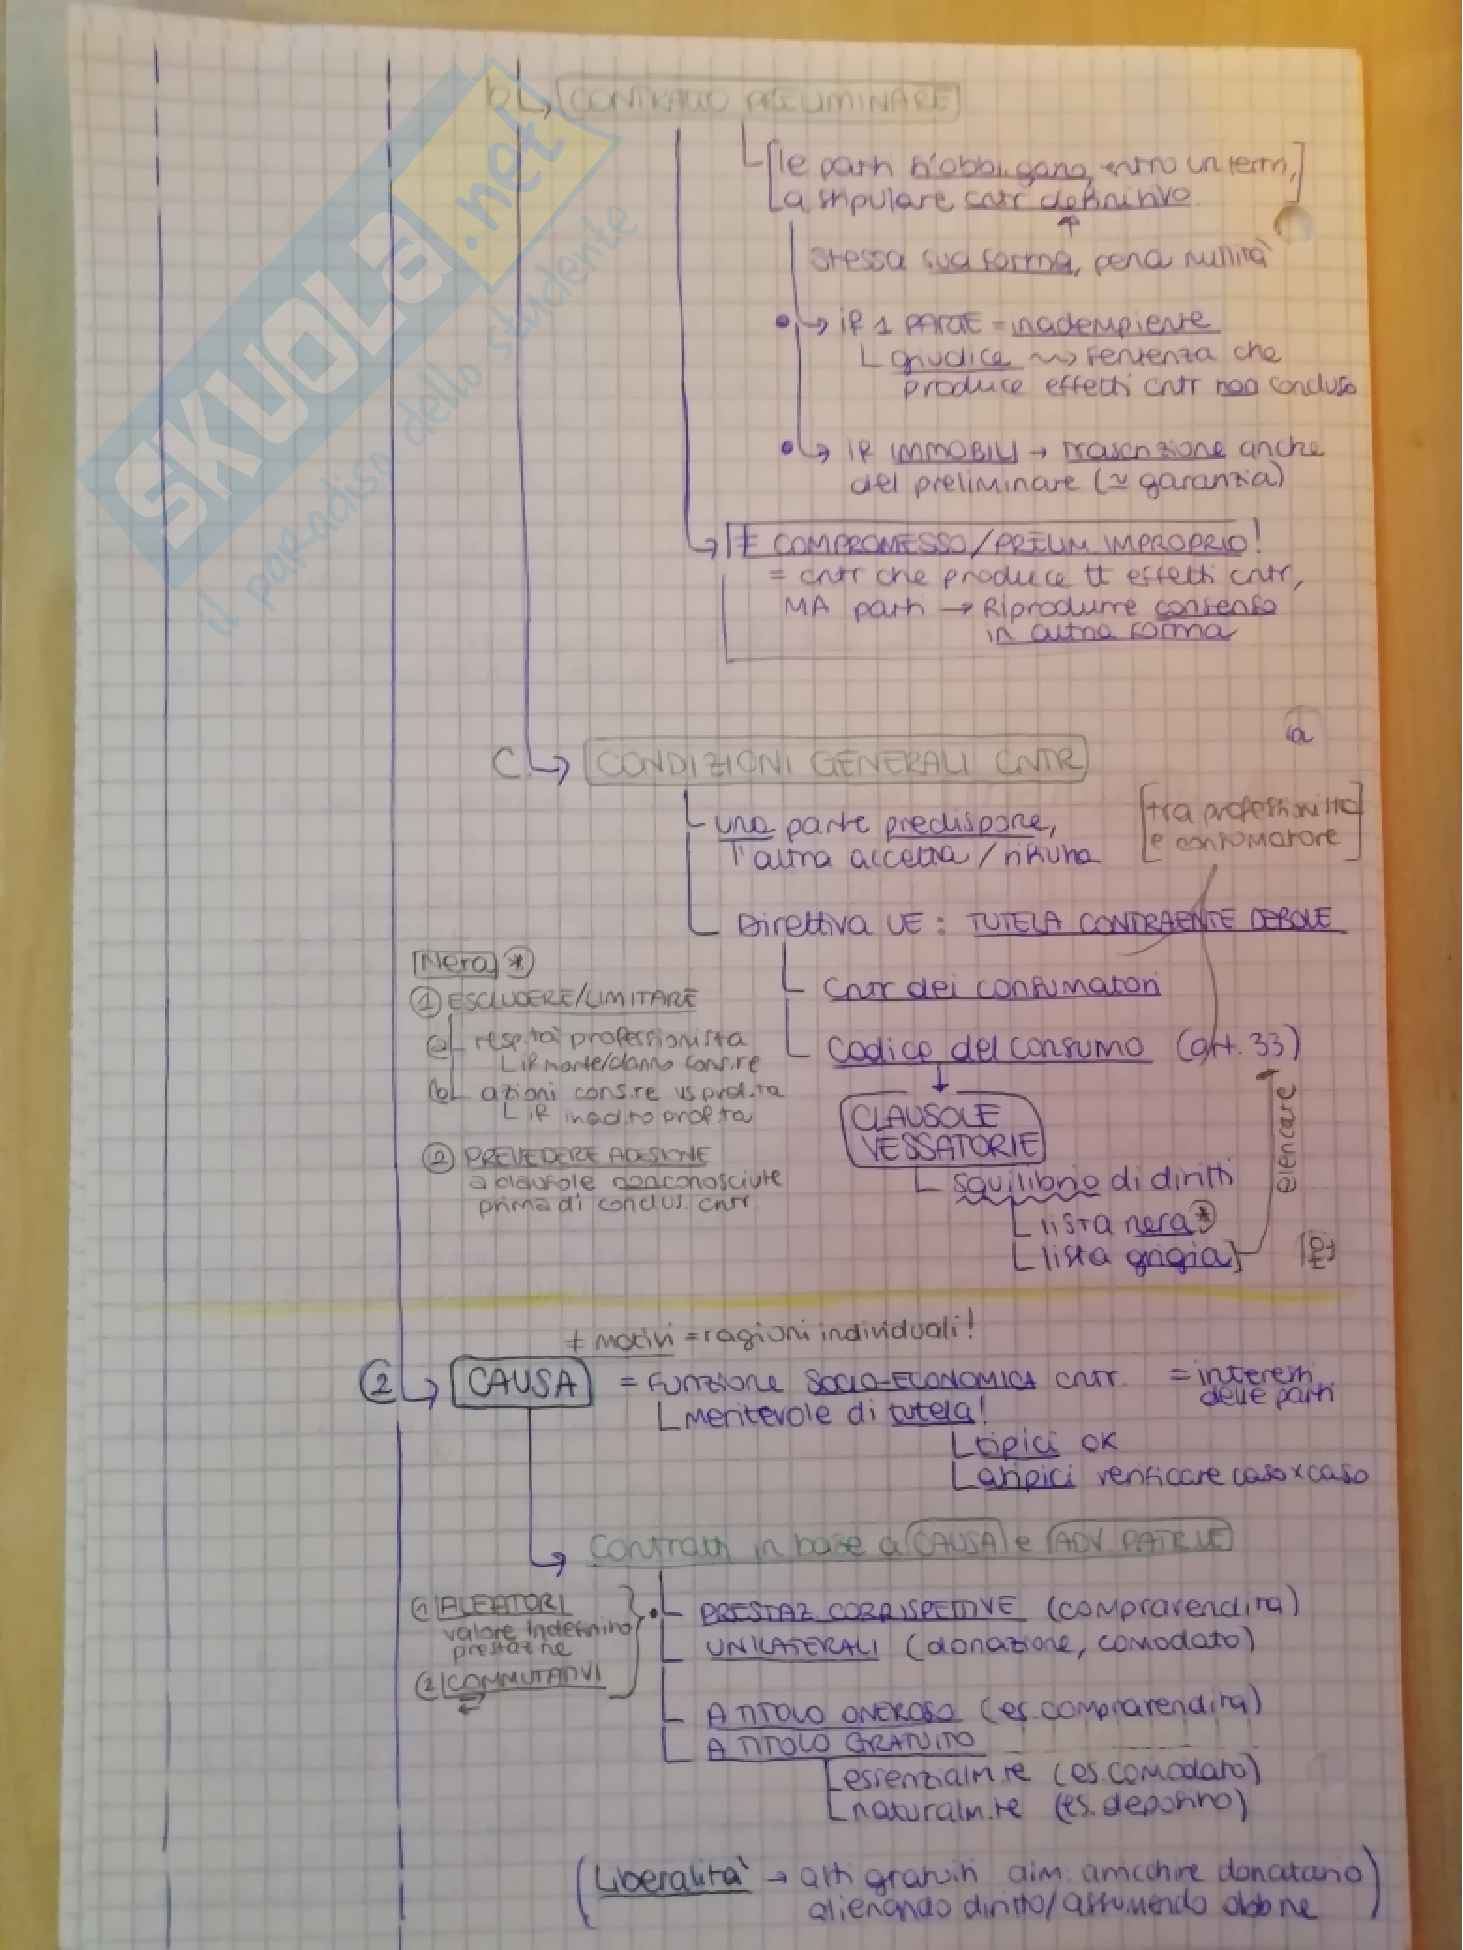 b CONTRATTO PRELIMINARE
le parti s'obbligano, entro un term,
a stipulare cntr definitivo
stessa sua forma, pena nullità
if 1 PARTE = inadempiente
giudice → sentenza che
produce effetti cntr non concluso
if IMMOBILI → trascrizione anche
del preliminare (≃ garanzia)
≠ COMPROMESSO/PRELIM IMPROPRIO!
= cntr che produce tt effetti cntr,
MA parti → Riprodurre consenso
in altra forma
a
C CONDIZIONI GENERALI CNTR
[tra professionista
e consumatore]
una parte predispone,
l'altra accetta / rifiuta
Direttiva UE: TUTELA CONTRAENTE DEBOLE
Nera *
① ESCLUDERE/LIMITARE
a resp.tà professionista
if morte/danno cons.re
b azioni cons.re vs prof.ta
if inad.to prof.ta
② PREVEDERE ADESIONE
a clausole non conosciute
prima di conclus. cntr
cntr dei consumatori
codice del consumo (art. 33)
CLAUSOLE
VESSATORIE
squilibrio di diritti
lista nera *
lista grigia
elencare
≠ motivi = ragioni individuali!
② CAUSA = funzione SOCIO-ECONOMICA cntr. = interessi
delle parti
meritevole di tutela!
tipici OK
atipici verificare caso x caso
Contratti in base a CAUSA e ADV PATR.LE
① ALEATORI
valore indefinito
prestaz.ne
② COMMUTATIVI
PRESTAZ CORRISPETTIVE (compravendita)
UNILATERALI (donazione, comodato)
A TITOLO ONEROSO (es. compravendita)
A TITOLO GRATUITO
essenzialm.te (es. comodato)
naturalm.te (es. deposito)
(Liberalità → atti gratuiti aim: arricchire donatario
alienando diritto/assumendo obb.ne)
SKUOLA.net
il paradiso dello studente